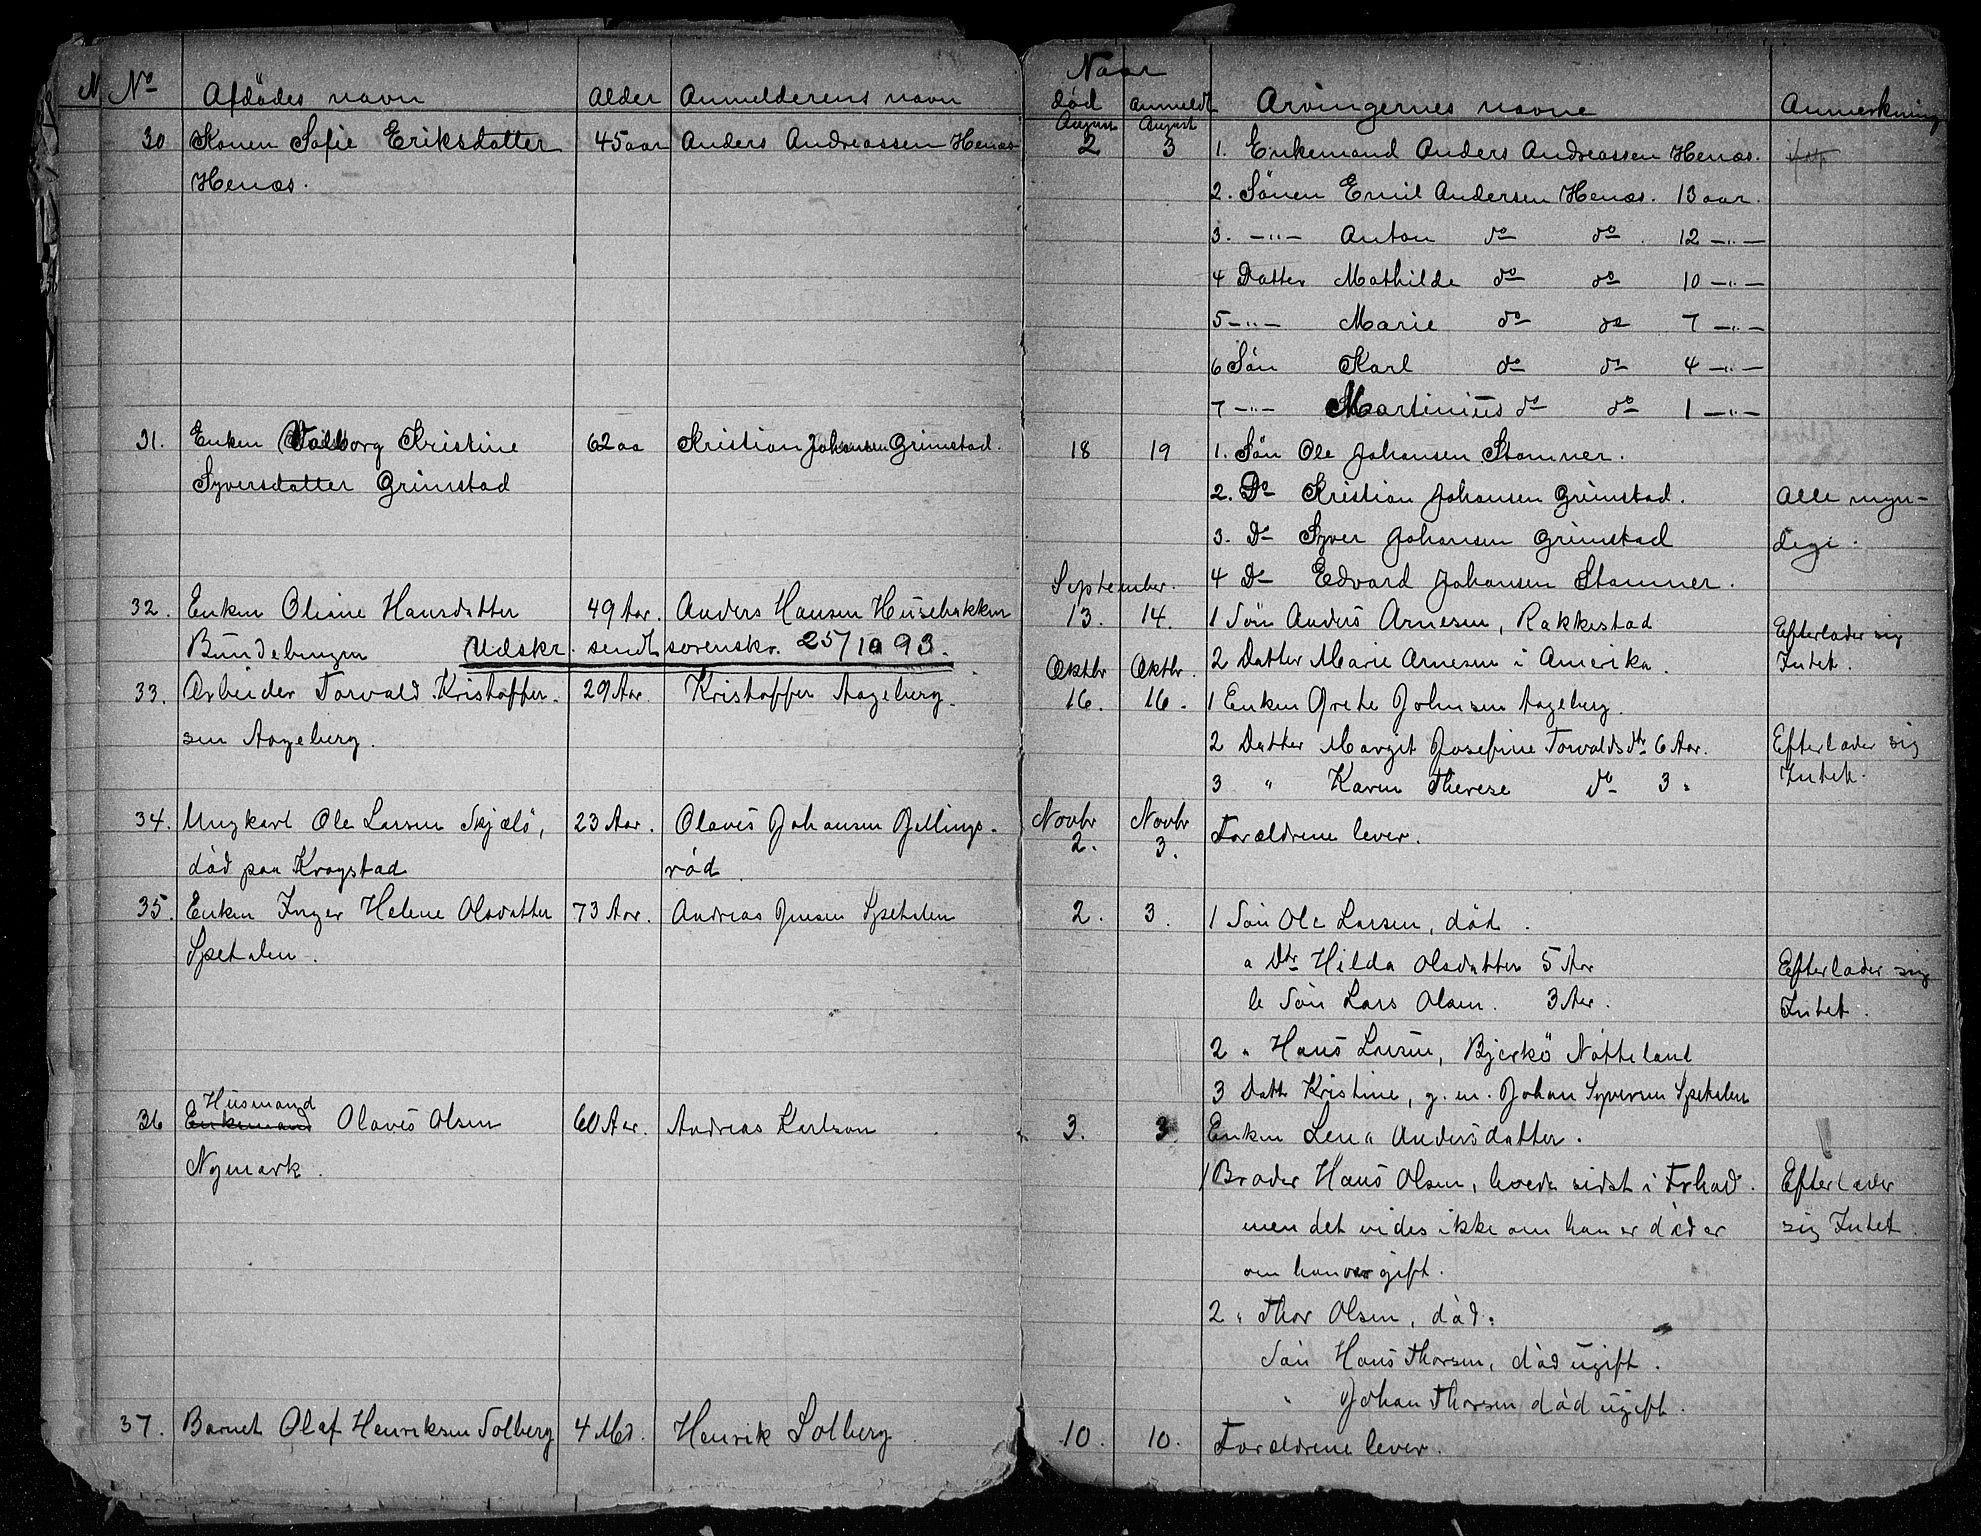 N No Afdödes navn Alder Anmelderens navn
30 Konen Sofie Eriksdatter 45 aar Anders Andreassen Henæs
Henæs.
31. Enken Valborg Kristine 62 aa Kristian Johansen Grimstad.
Syversdatter Grimstad
32. Enken Oliane Hansdatter 49 Aar. Anders Hansen Husebakken
Bundebingen Udskr. sendt sorenskr. 25/10 93.
33. Arbeider Torvald Kristoffer- 29 Aar. Kristoffer Aageberg.
sen Aageberg.
34. Ungkarl Ole Larsen Skjælö, 23 Aar. Olavis Johansen Jellings-
död paa Krogstad röd
35. Enken Inger Helene Olsdatter 73 Aar. Andreas Jensen Spetalen
Spetalen.
Husmand
36 Enkemand Olavis Olsen 60 Aar. Andreas Karlson
Nymark.
37. Barnet Olaf Henriksen Solberg 4 Md. Henrik Solberg
Naar
död anmeldt Arvingernes navne Anmerkning
August August
2 3 1. Enkemand Anders Andreassen Henæs.
2. Sönen Emil Andersen Henæs. 13 aar.
3. -"- Anton do do 12 -"-
4 Datter Mathilde do do 10 -"-
5 -"- Marie do do 7 -"-
6 Sön Karl do do 4 -"-
7 -"- Martinius do do 1 -"-
18 19 1. Sön Ole Johansen Stomner.
2. Do Kristian Johansen Grimstad. Alle myn-
3. Do Syver Johansen Grimstad dige.
September. 4 Do Edvard Johansen Stomner.
13. 14. 1 Sön Anders Arnesen, Rakkestad Efterlader sig
2 Datter Marie Arnesen i Amerika. Intet.
Oktbr Oktbr.
16. 16. 1 Enken Grete Johnsen Aageberg.
2 Datter Margit Josefine Torvaldsdtr 6 Aar. Efterlader sig
3 " Karen Therese do 3 " Intet.
Novbr Novbr
2. 3. Forældrene lever.
2. 3. 1 Sön Ole Larsen, död.
a Dtr Hilda Olsdatter 5 Aar Efterlader sig
b Sön Lars Olsen. 3 Aar. Intet.
2 " Hans Larsen, Bjerkö Nötteland
3 Datt Kristine, g. m. Johan Syversen Spetalen
3. 3. Enken Lena Andersdatter.
1 Broder Hans Olsen, boede sidst i Frhad. Efterlader
men det vides ikke om han er död er sig Intet.
om han var gift.
2 " Thor Olsen, död.
Sön Hans Thorsen, död ugift.
" Johan Thorsen död ugift.
10. 10. Forældrene lever.